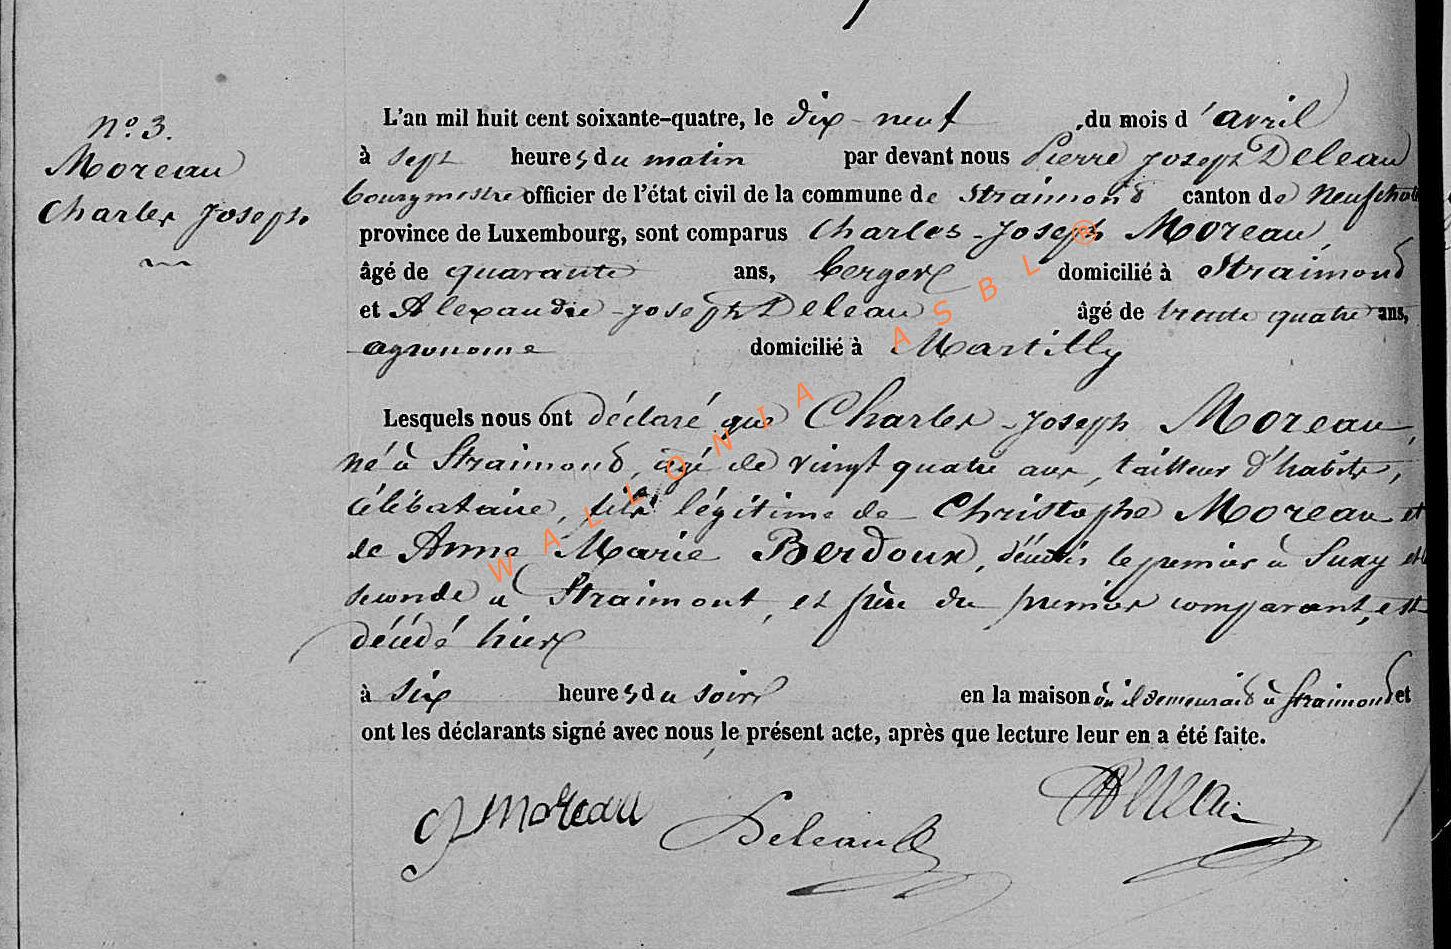 N° 3.
Moreau
Charles Joseph
L'an mil huit cent soixante-quatre, le dix-neuf du mois d'avril
à sept heures du matin par devant nous Pierre Joseph Deleau
bourgmestre officier de l'état civil de la commune de Straimond canton de Neufchat
province de Luxembourg, sont comparus Charles-Joseph Moreau,
âgé de quarante ans, berger domicilié à Straimond
et Alexandre-Joseph Deleau âgé de trente quatre ans,
agronome domicilié à Martilly
Lesquels nous ont déclaré que Charles-Joseph Moreau,
né à Straimond, âgé de vingt quatre ans, tailleur d'habits,
célibataire, fils légitime de Christophe Moreau et
de Anne Marie Berdoux, décédés le premier à Suxy et
seconde à Straimont, et frère du premier comparant, est
décédé hier
à six heures du soir en la maison où il demeurait à Straimond et
ont les déclarants signé avec nous le présent acte, après que lecture leur en a été faite.
CJ Moreau Deleau
WALLONIA ASBL ®